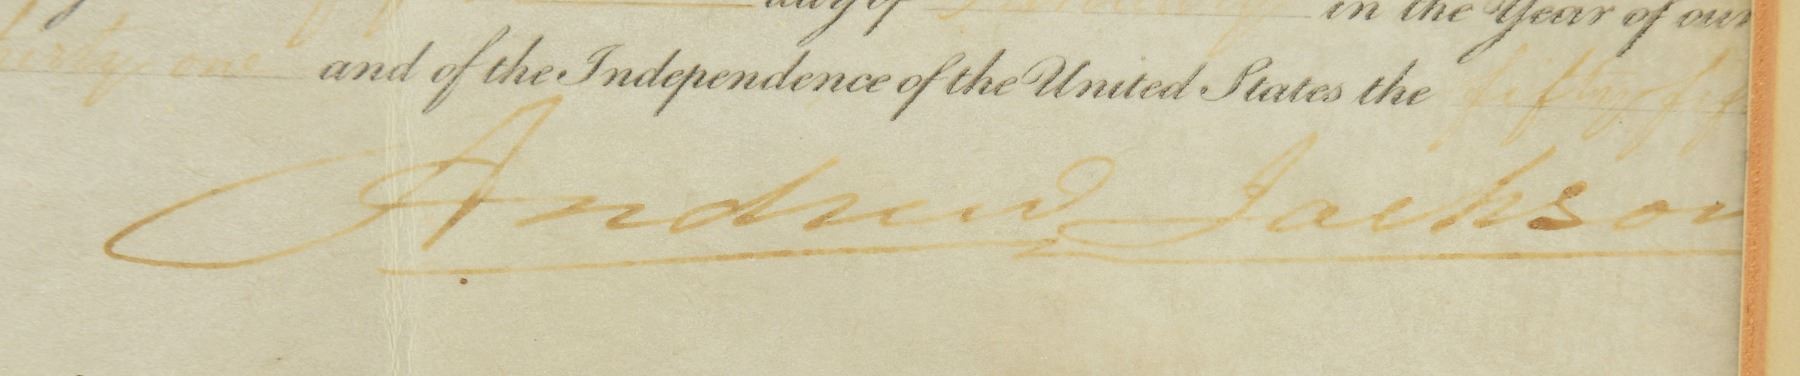 day of in the Year of our
thirty one and of the Independence of the United States the fifty fif
Andrew Jackson